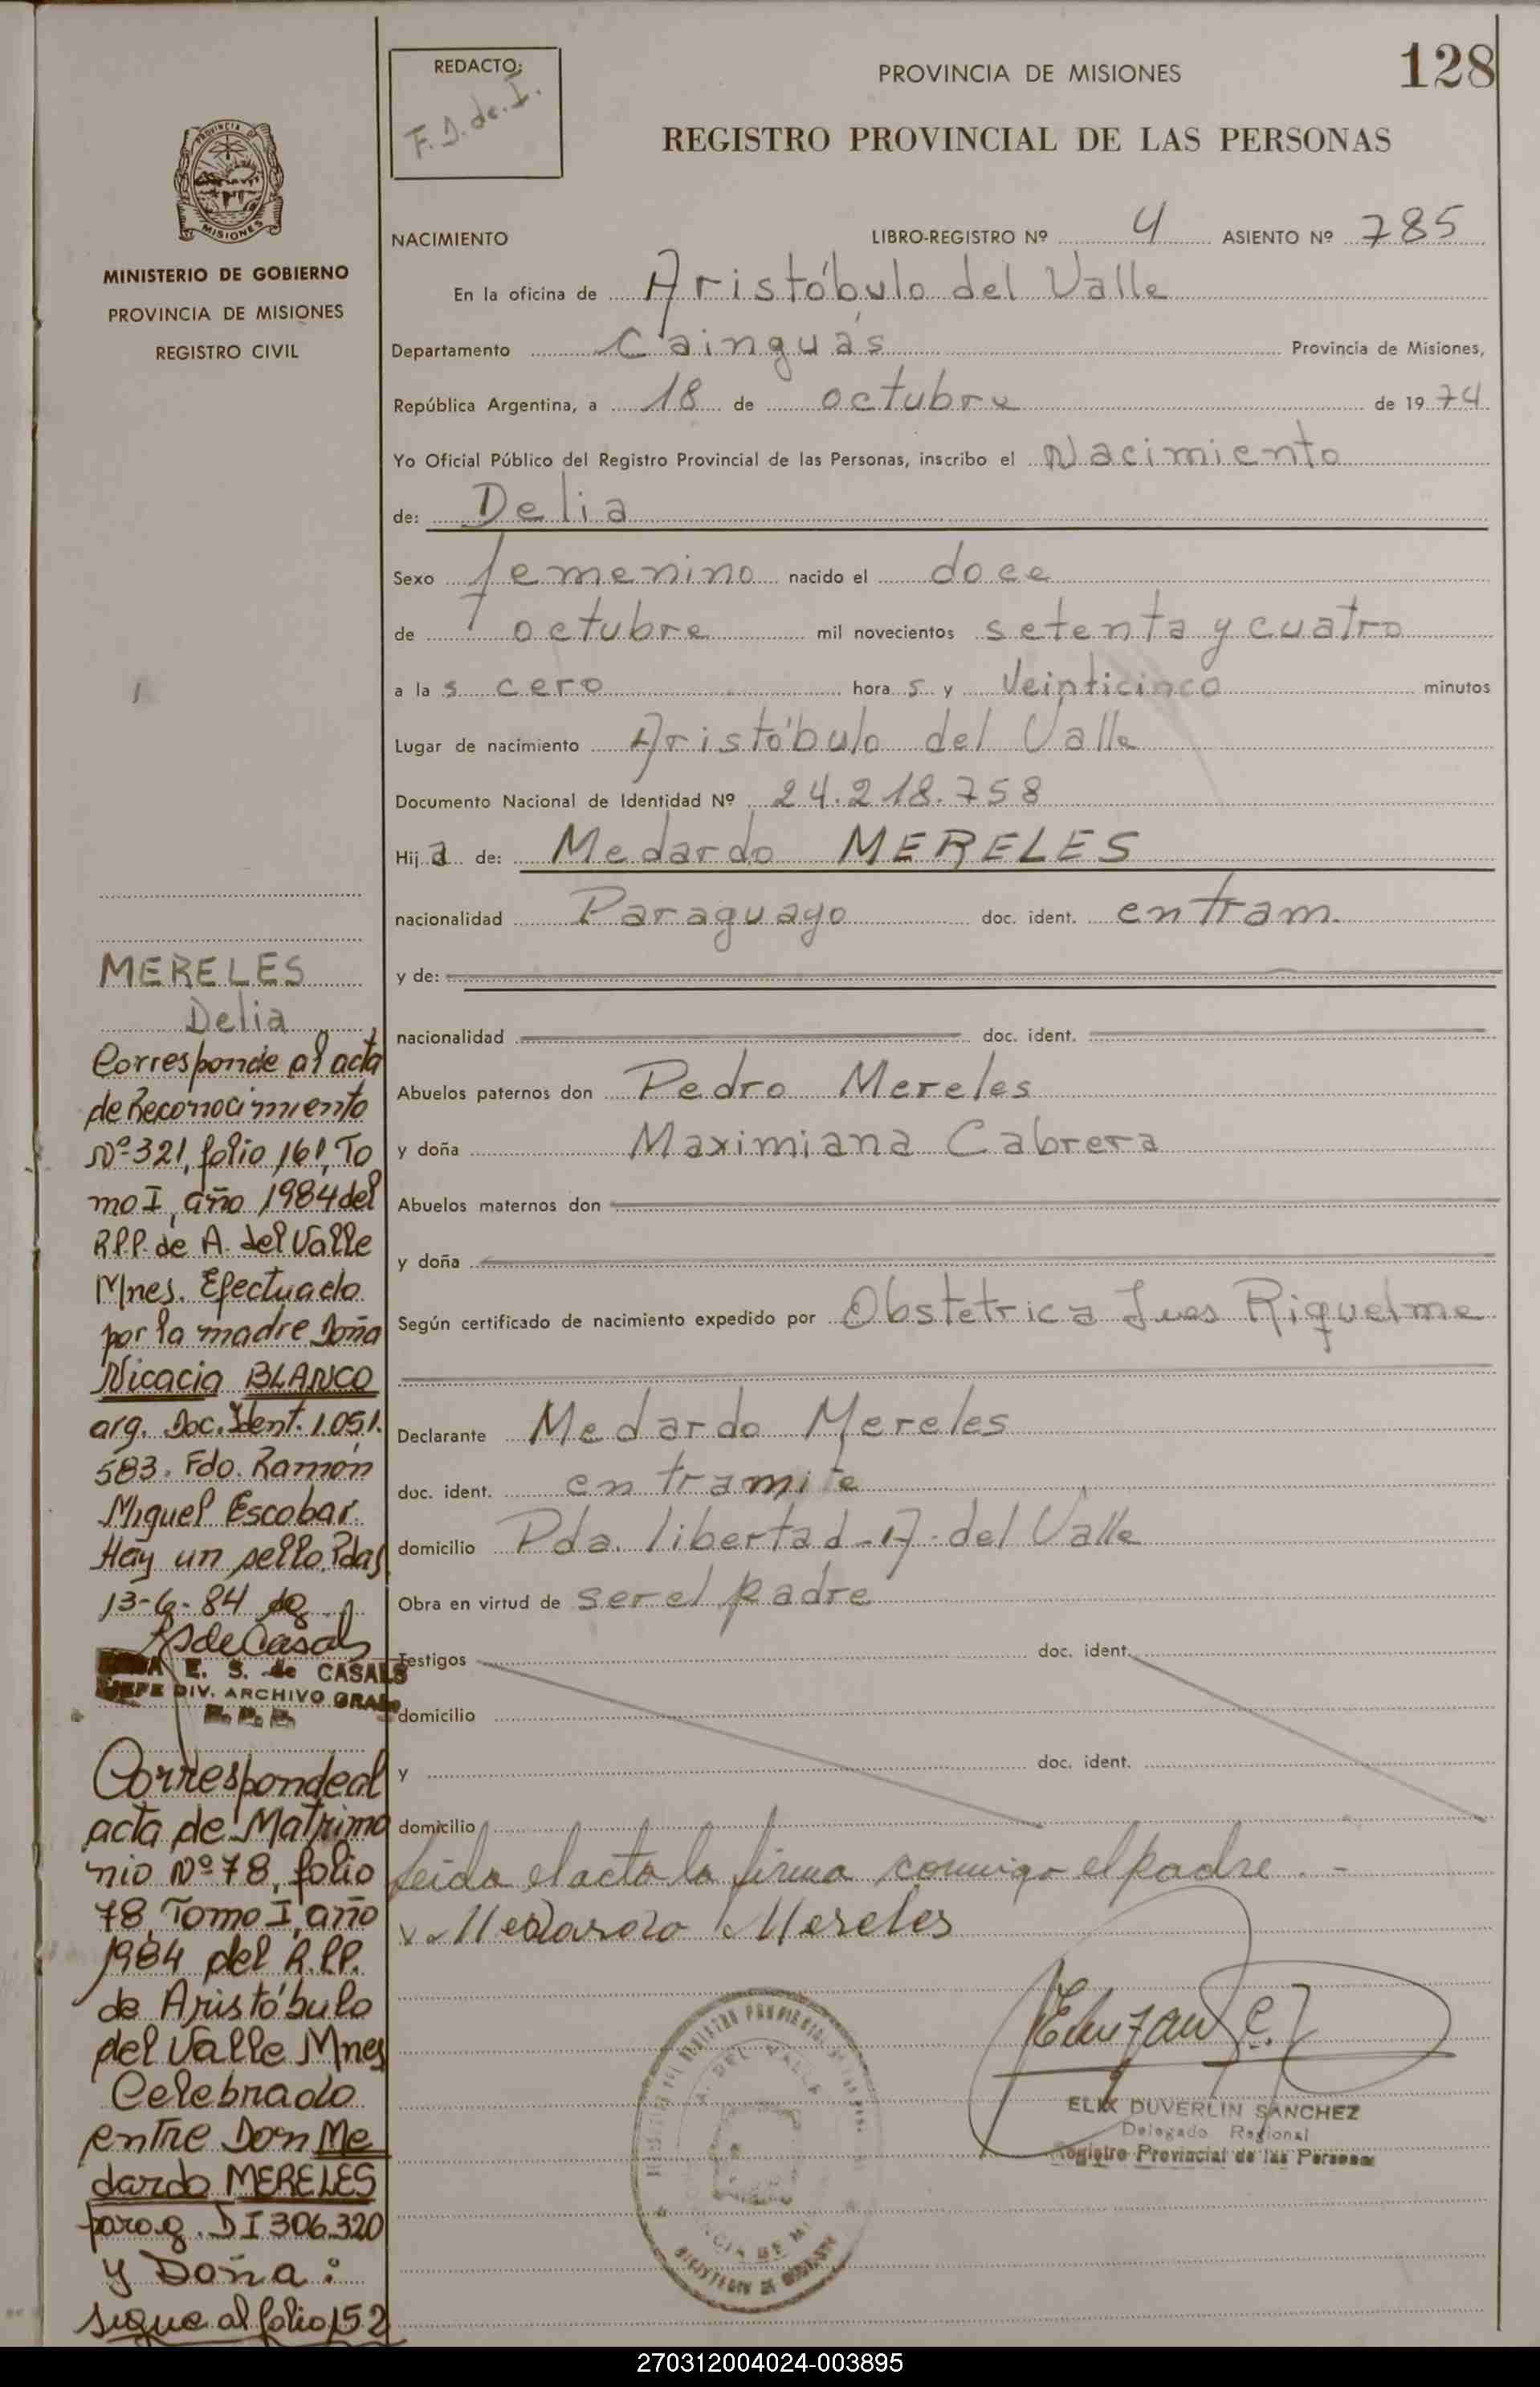 128
REDACTO:
F. D. de. I.
PROVINCIA DE MISIONES
REGISTRO PROVINCIAL DE LAS PERSONAS
MISIONES
MINISTERIO DE GOBIERNO
PROVINCIA DE MISIONES
REGISTRO CIVIL
NACIMIENTO LIBRO-REGISTRO Nº 4 ASIENTO Nº 785
En la oficina de Aristóbulo del Valle
Departamento Cainguás Provincia de Misiones,
República Argentina, a 18 de octubre de 1974
Yo Oficial Público del Registro Provincial de las Personas, inscribo el Nacimiento
de: Delia
Sexo femenino nacido el doce
de octubre mil novecientos setenta y cuatro
a las cero horas y Veinticinco minutos
Lugar de nacimiento Aristóbulo del Valle
Documento Nacional de Identidad Nº 24.218.758
Hija de: Medardo MERELES
nacionalidad Paraguayo doc. ident. en tram.
y de:
nacionalidad doc. ident.
Abuelos paternos don Pedro Mereles
y doña Maximiana Cabrera
Abuelos maternos don
y doña
Según certificado de nacimiento expedido por Obstetrica Ines Riquelme
Declarante Medardo Mereles
doc. ident. en tramite
domicilio Pda. libertad - A. del Valle
Obra en virtud de ser el padre
Testigos doc. ident.
domicilio
y doc. ident.
domicilio
leida el acta la firma conmigo el padre . -
Medardo Mereles
ELIX DUVERLIN SANCHEZ
Delegado Regional
Registro Provincial de las Personas
MERELES
Delia
Corresponde al acta
de Reconocimiento
Nº 321, folio 161, To
mo I, año 1984 del
R.P.P. de A. del Valle
Mnes. Efectuado
por la madre Doña
Nicacia BLANCO
arg. Doc. Ident. 1.051.
583. Fdo. Ramón
Miguel Escobar.
Hay un sello. Pdas
13-6-84
E. S. de CASALS
JEFE DIV. ARCHIVO GRAL
R. P. P.
Corresponde al
acta de Matrimo
nio Nº 78, folio
78, Tomo I, año
1984 del R.P.P.
de Aristóbulo
del Valle Mnes
Celebrado
entre Don Me
dardo MERELES
parag. DI 306.320
y Doña:
sigue al folio 152
270312004024-003895